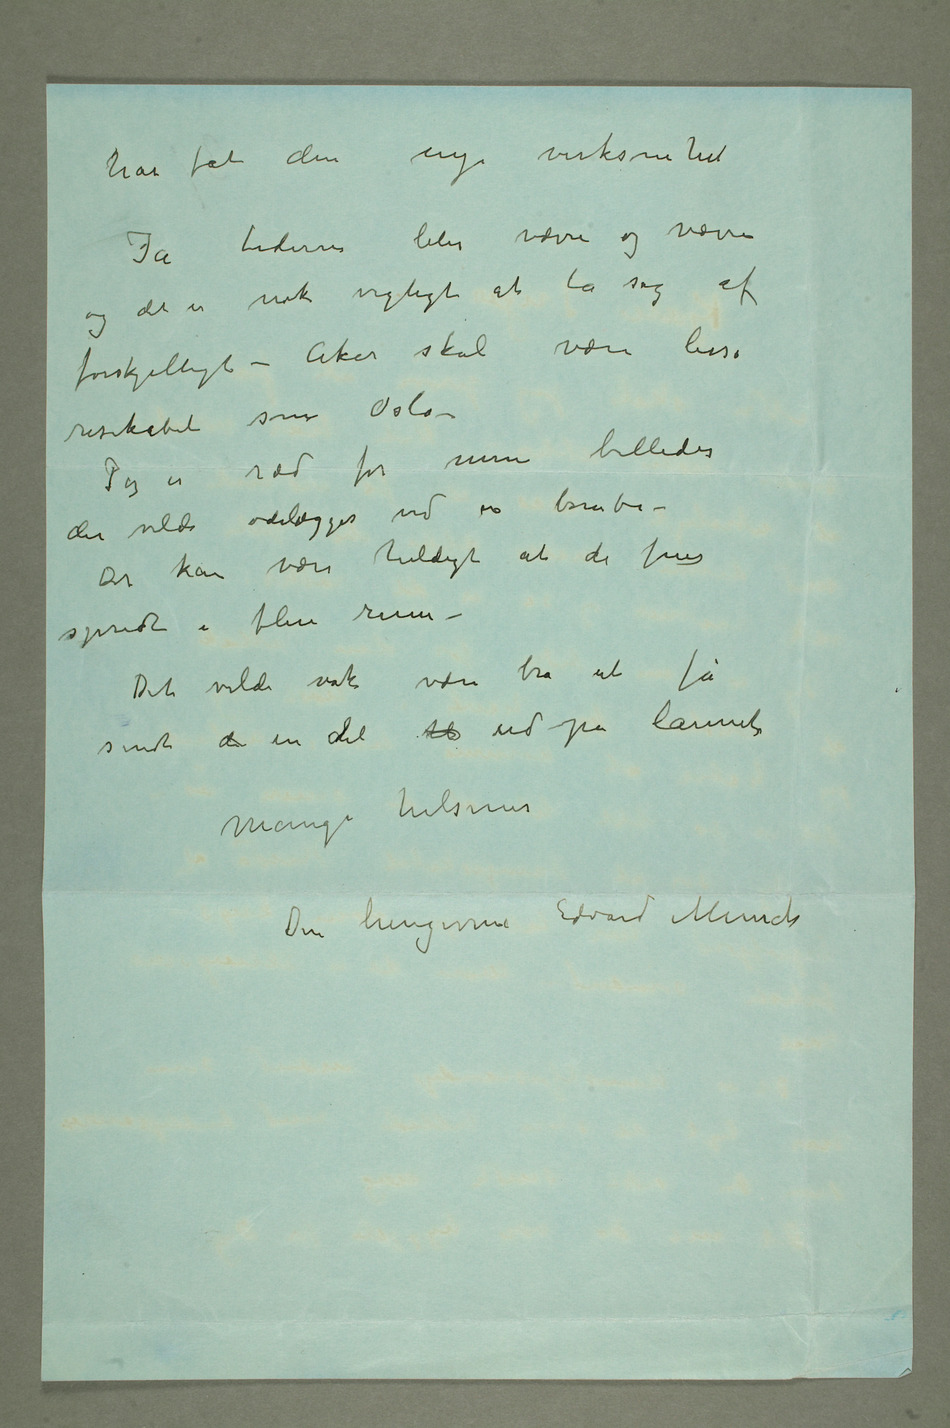 har fåt den nye virksomhet
Ja tiderne blir værre og værre
og det er nok vigtigt at ta sig af
forskjelligt – Aker skal være ligeså
risikabelt som Oslo –
Jeg er ræd for mine billeder
der vilde ødelægges ved en bombe –
Det kan være heldigt at de fins
spredt i flere rum –
Det vilde nok være bra at få
sendt de en del ud på landet
Mange hilsener
Din hengivne Edvard Munch